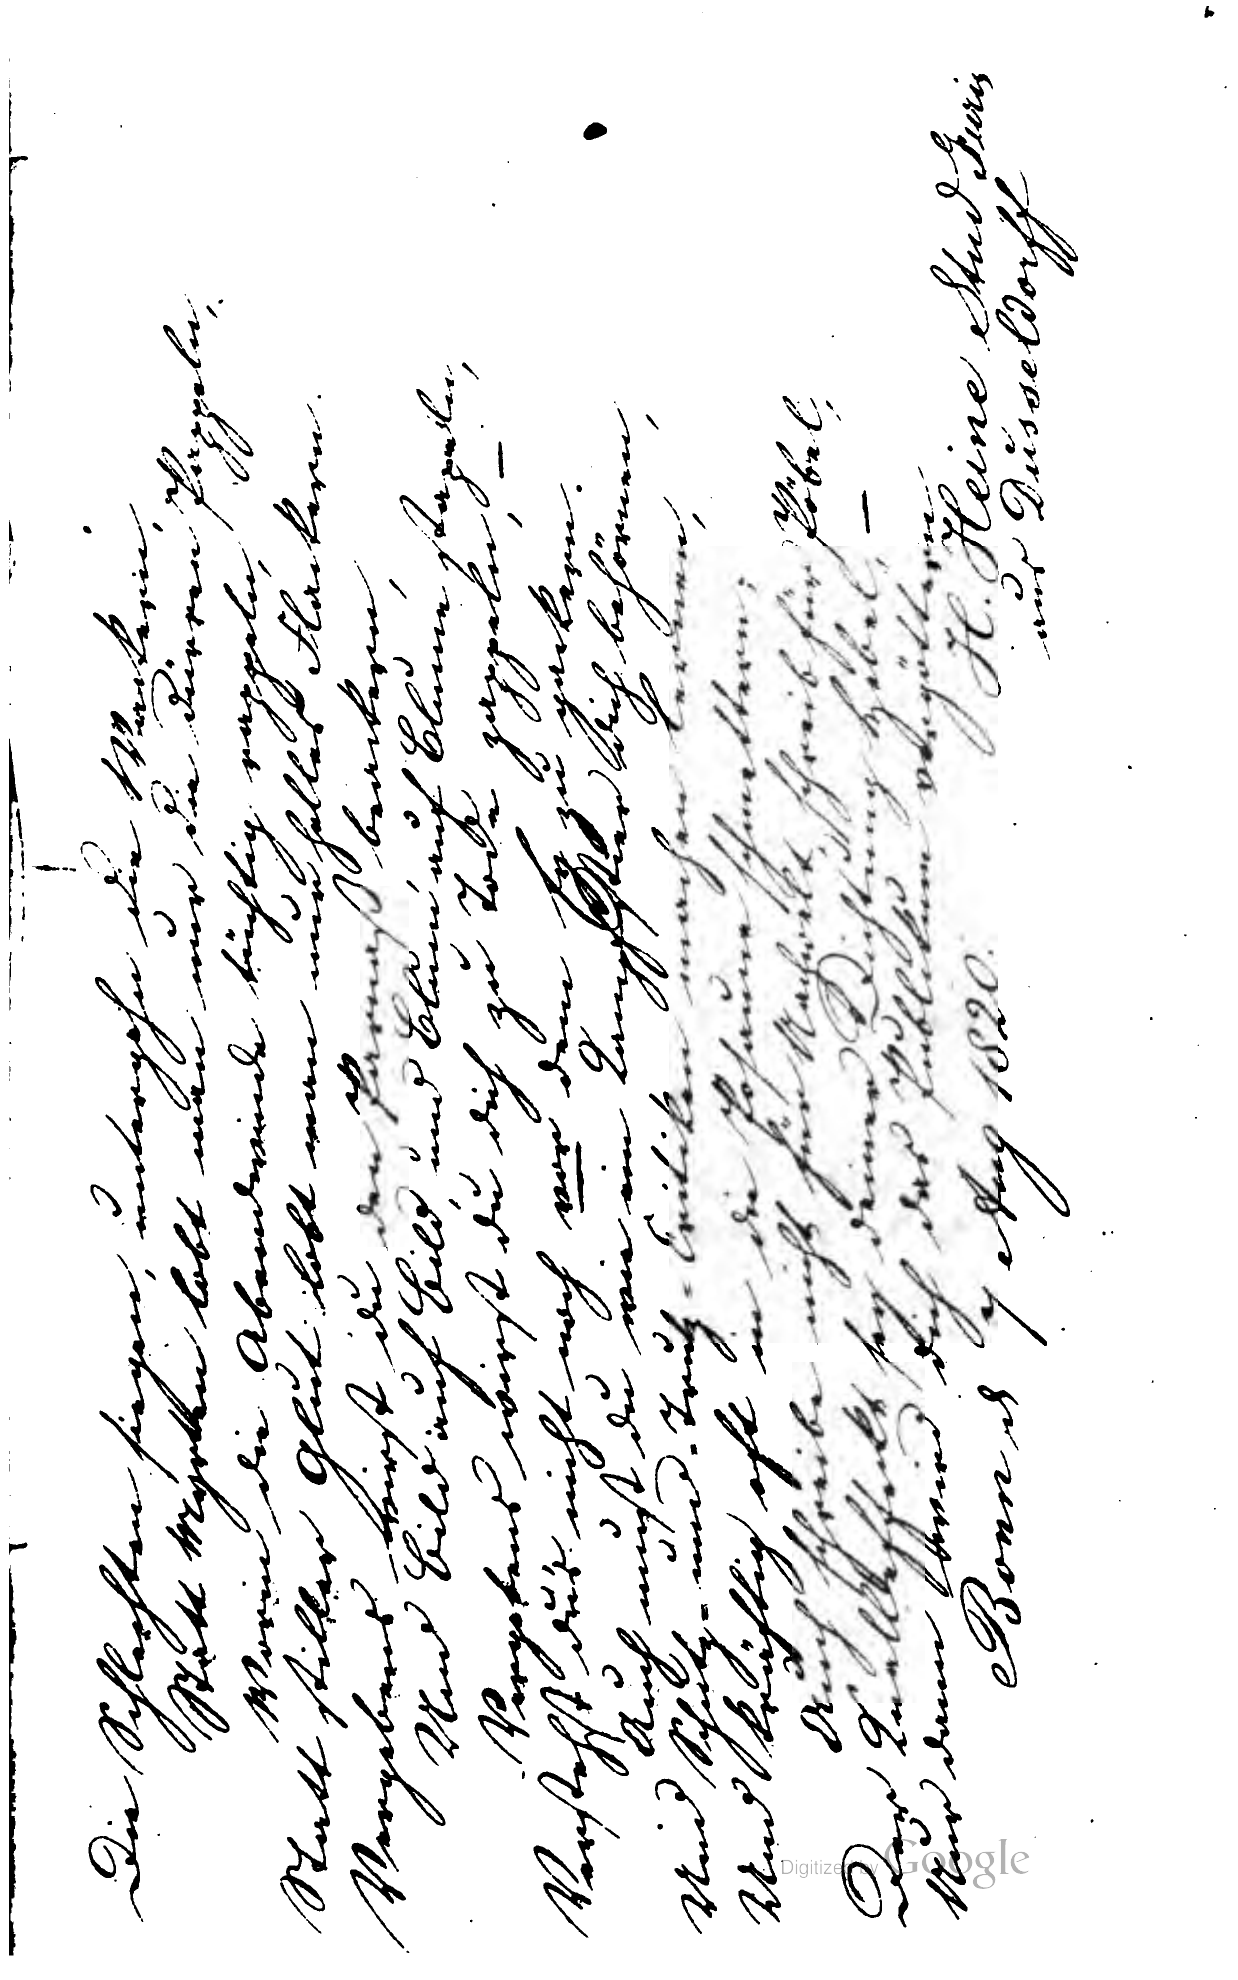 Die Schlechten siegen, untergehn die Wackern,
Statt Myrthen lobt man nur die dürren Pappeln,
Worin die Abendwinde tüchtig rappeln,
Statt stiller Glut lobt man nur helles Flackern.
Vergebens wirst du den Parnaß beackern,
Und Bild auf Bild und Blum' auf Blume stapeln,
Vergebens wirst du dich zu Tode zappeln, —
Verstehst du's nicht noch vor dem Ey zu gackern.
Auch must du wie ein Kampfstier dich behörnen,
Und Schutz- und -Trutz-Critiken machen lernen,
Und kräftig oft in die Posaune schmettern;
Auch schreibe nicht für Nachwelt, schreib für Pöbel,
Der Knalleffekt sey deiner Dichtung Hebel, —
Nur dann wird dich das Publikum vergöttern.
Bonn d 7 Aug 1820.
H. Heine Stud Juris
aus Düsseldorff
Digitized by Google